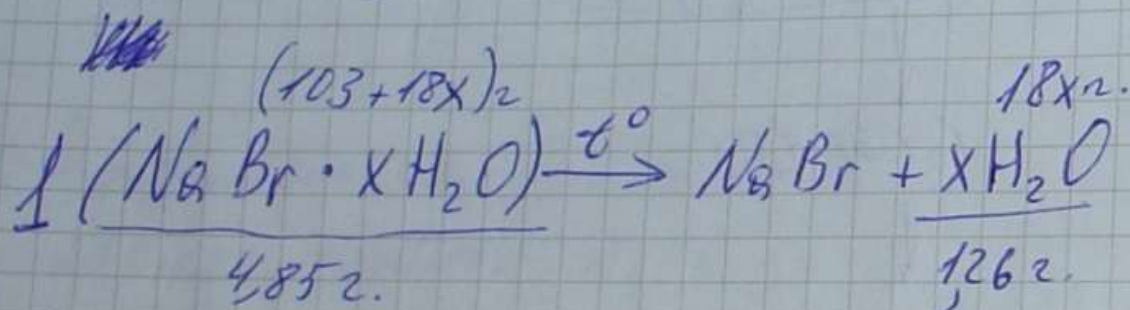 (103+18x)г 18xг.
1 (NaBr · xH₂O) t° → NaBr + xH₂O
4,85г. 1,26г.